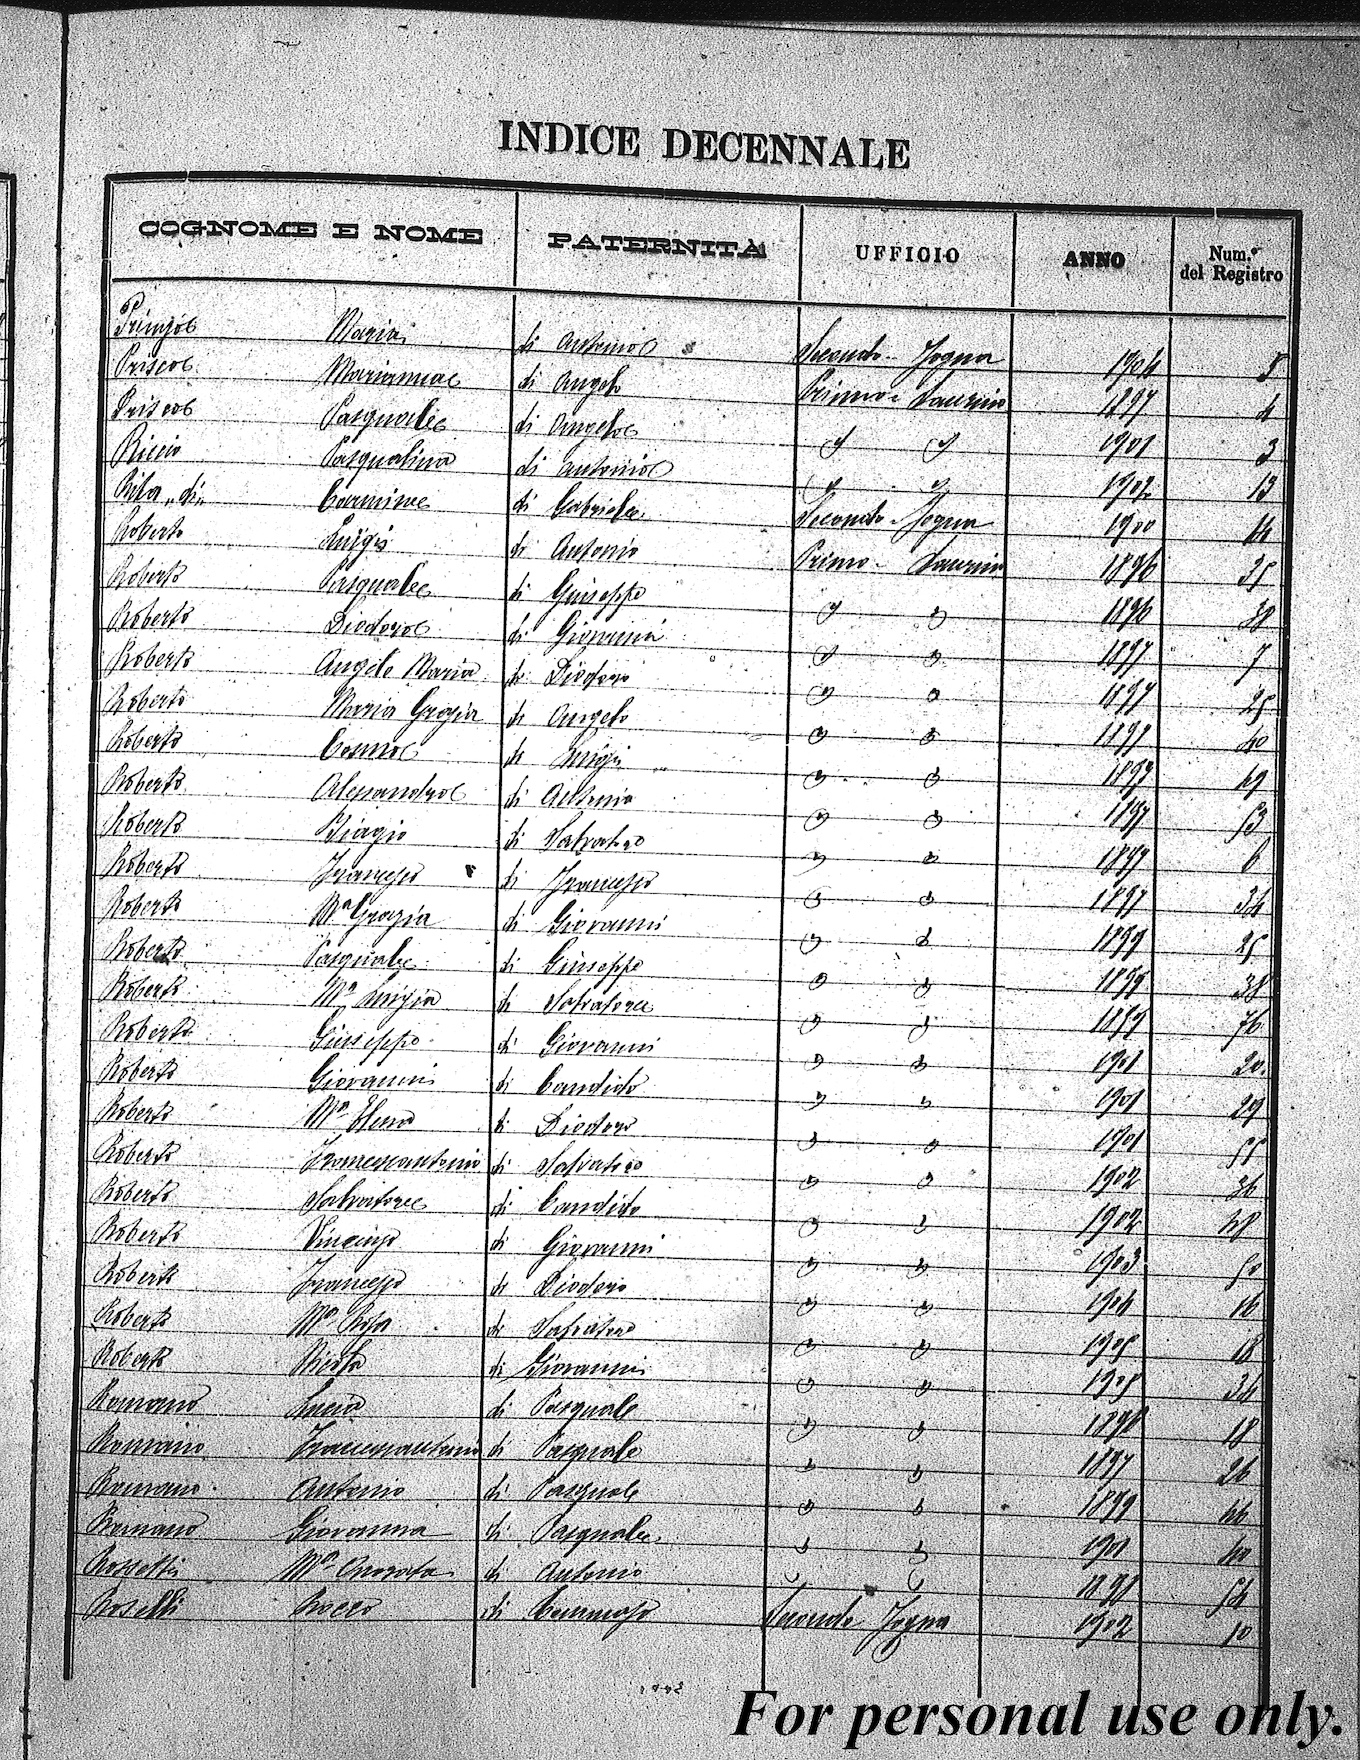 INDICE DECENNALE
COGNOME E NOME PATERNITÀ UFFICIO ANNO Num.° del Registro
Maria di Antonio Secondo - Fogna 1904 5
Prisco Marianna di Angelo Primo - Laurino 1897 4
Prisco Pasquale di Angelo " " 1901 3
Riccio Pasqualina di Antonio " " 1902 13
Rita „di„ Carmine di Gabriele Secondo - Fogna 1900 14
Roberto Luigi di Antonio Primo - Laurino 1896 35
Roberto Pasquale di Giuseppe " " 1896 38
Roberto Diodoro di Giovanni " " 1897 7
Roberto Angelo Maria di Diodoro " " 1897 25
Roberto Maria Grazia di Angelo " " 1897 40
Roberto Cosmo di Luigi " " 1897 49
Roberto Alessandro di Antonio " " 1897 53
Roberto Biagio di Salvatore " " 6
Roberto Francesco di Francesco " " 1897 34
Roberto Mª Grazia di Giovanni " " 1899 25
Roberto Pasquale di Giuseppe " " 1899 38
Roberto Mª Luigia di Salvatore " " 1899 76
Roberto Giuseppe di Giovanni " " 1901 20
Roberto Giovanni di Candido " " 1901 29
Roberto Mª Elena di Diodoro " " 1901 55
Roberto Francescantonio di Salvatore " " 1902 36
Roberto Salvatore di Candido " " 1902 48
Roberto Vincenzo di Giovanni " " 1903 50
Roberto Francesco di Diodoro " " 1904 16
Roberto Mª Rosa di Salvatore " " 1905 18
Roberto Nicola di Giovanni " " 1905 34
Romano Lucia di Pasquale " " 18
Romano Francescantonio di Pasquale " " 1897 26
Romano Antonio di Pasquale " " 1899 46
Romano Giovanna di Pasquale " " 1901 40
Rossetti Mª di Antonio " " 1898 54
Roselli Rocco di Tommaso Secondo Fogna 1902 10
For personal use only.